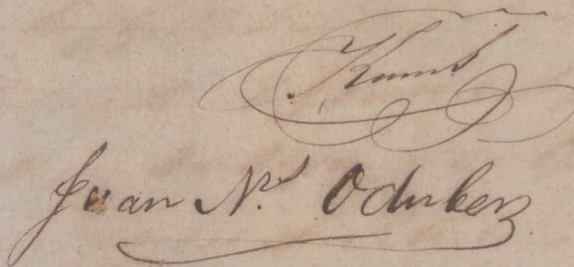 Juan N.s Oduber